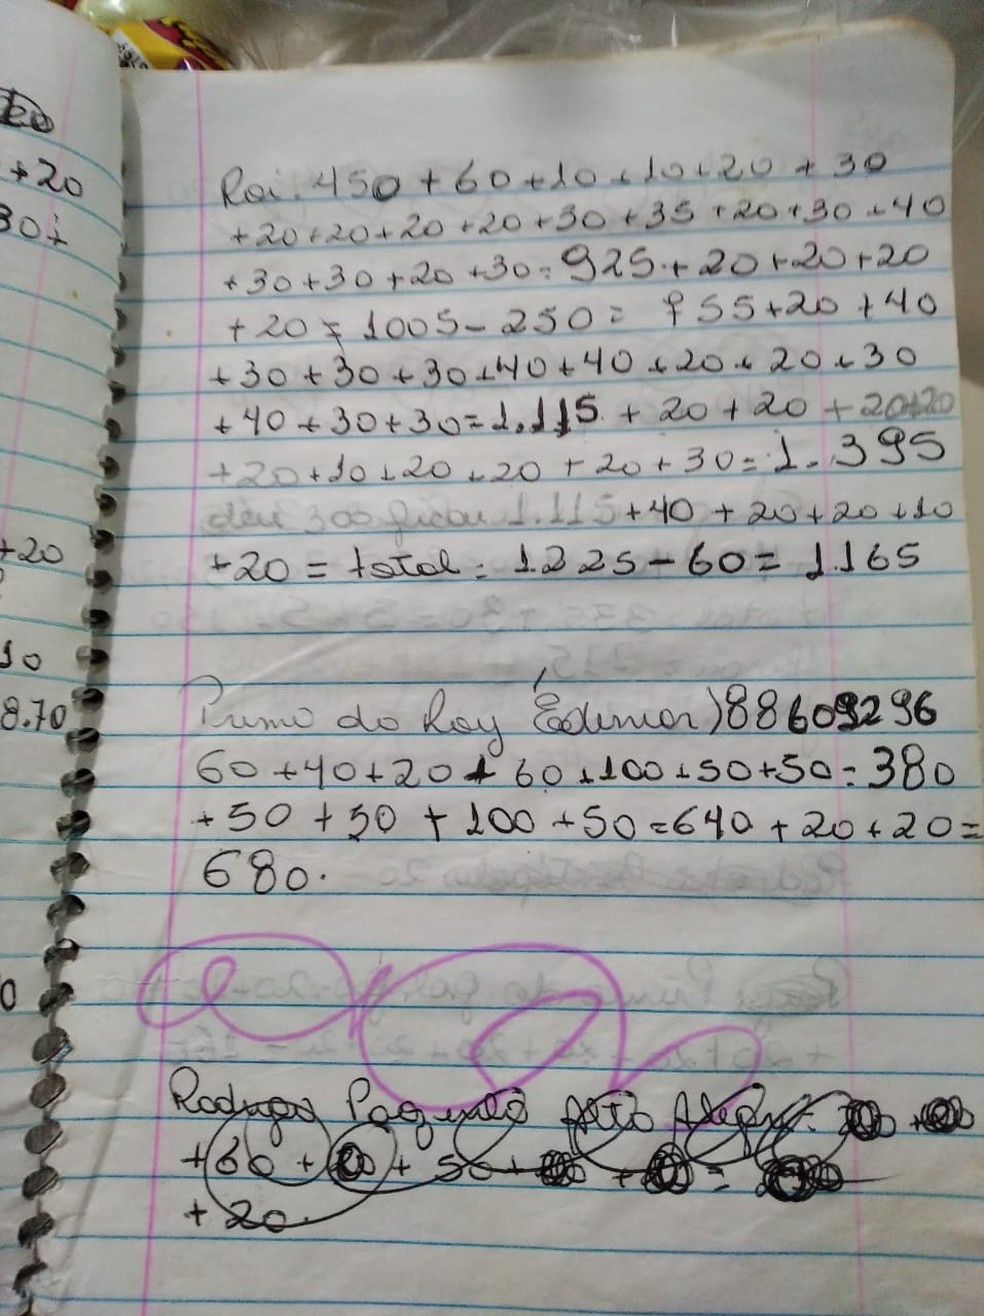 Roi. 450 + 60 + 10 + 10 + 20 + 30
+ 20 + 20 + 20 + 20 + 30 + 35 + 20 + 30 + 40
+ 30 + 30 + 20 + 30 = 925 + 20 + 20 + 20
+ 20 = 1005 - 250 = 755 + 20 + 40
+ 30 + 30 + 30 + 40 + 40 + 20 + 20 + 30
+ 40 + 30 + 30 = 1.115 + 20 + 20 + 20 + 20
+ 20 + 10 + 20 + 20 + 20 + 30 = 1.395
deu 300 ficou 1.115 + 40 + 20 + 20 + 10
+ 20 = total: 1225 - 60 = 1.165
Primo do Roy (Edimor) 88609296
60 + 40 + 20 + 60 + 100 + 50 + 50 = 380
+ 50 + 50 + 100 + 50 = 640 + 20 + 20 =
680.
Rodrigo
+ 60 + + 50 + + =
+ 20.
+20
30+
+20
10
8.70
0